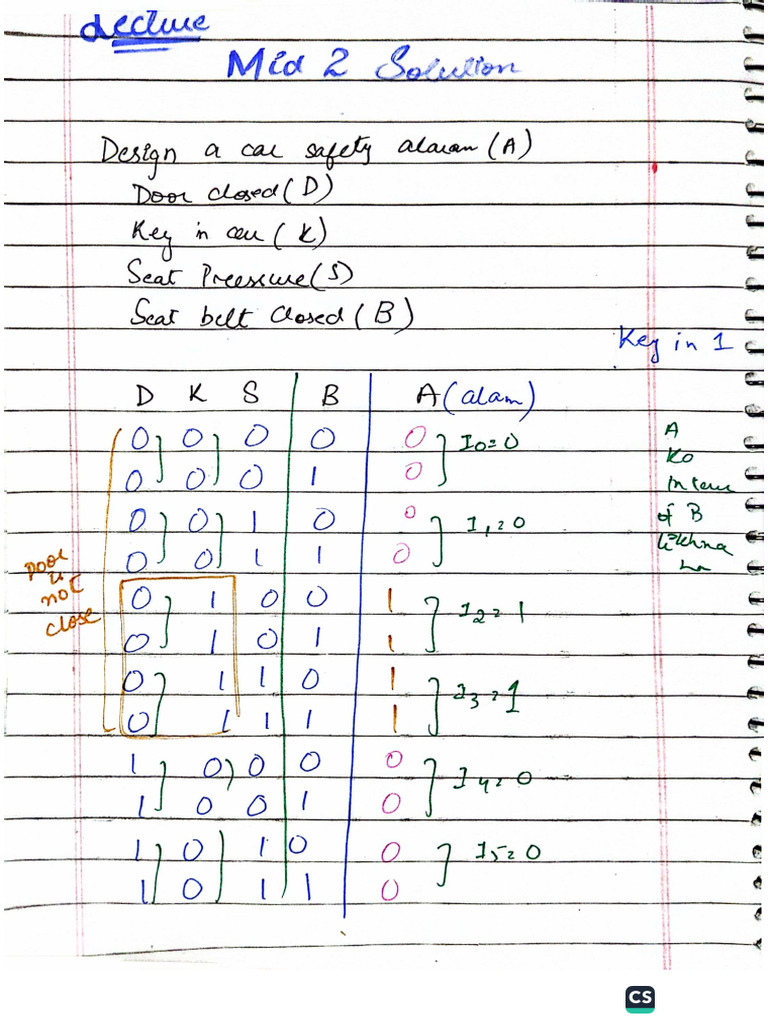 Lecture
Mid 2 Solution
Design a car safety alaram (A)
Door closed (D)
Key in car (K)
Seat Pressure (S)
Seat belt closed (B)
Key in 1
D K S B A (alam)
0 0 0 0 0 I0=0
0 0 0 1 0
0 0 1 0 0 I1=0
0 0 1 1 0
0 1 0 0 1 I2=1
0 1 0 1 1
0 1 1 0 1 I3=1
0 1 1 1 1
1 0 0 0 0 I4=0
1 0 0 1 0
1 0 1 0 0 I5=0
1 0 1 1 0
A
Ko
of B
likhna
Door
is
not
close
CS